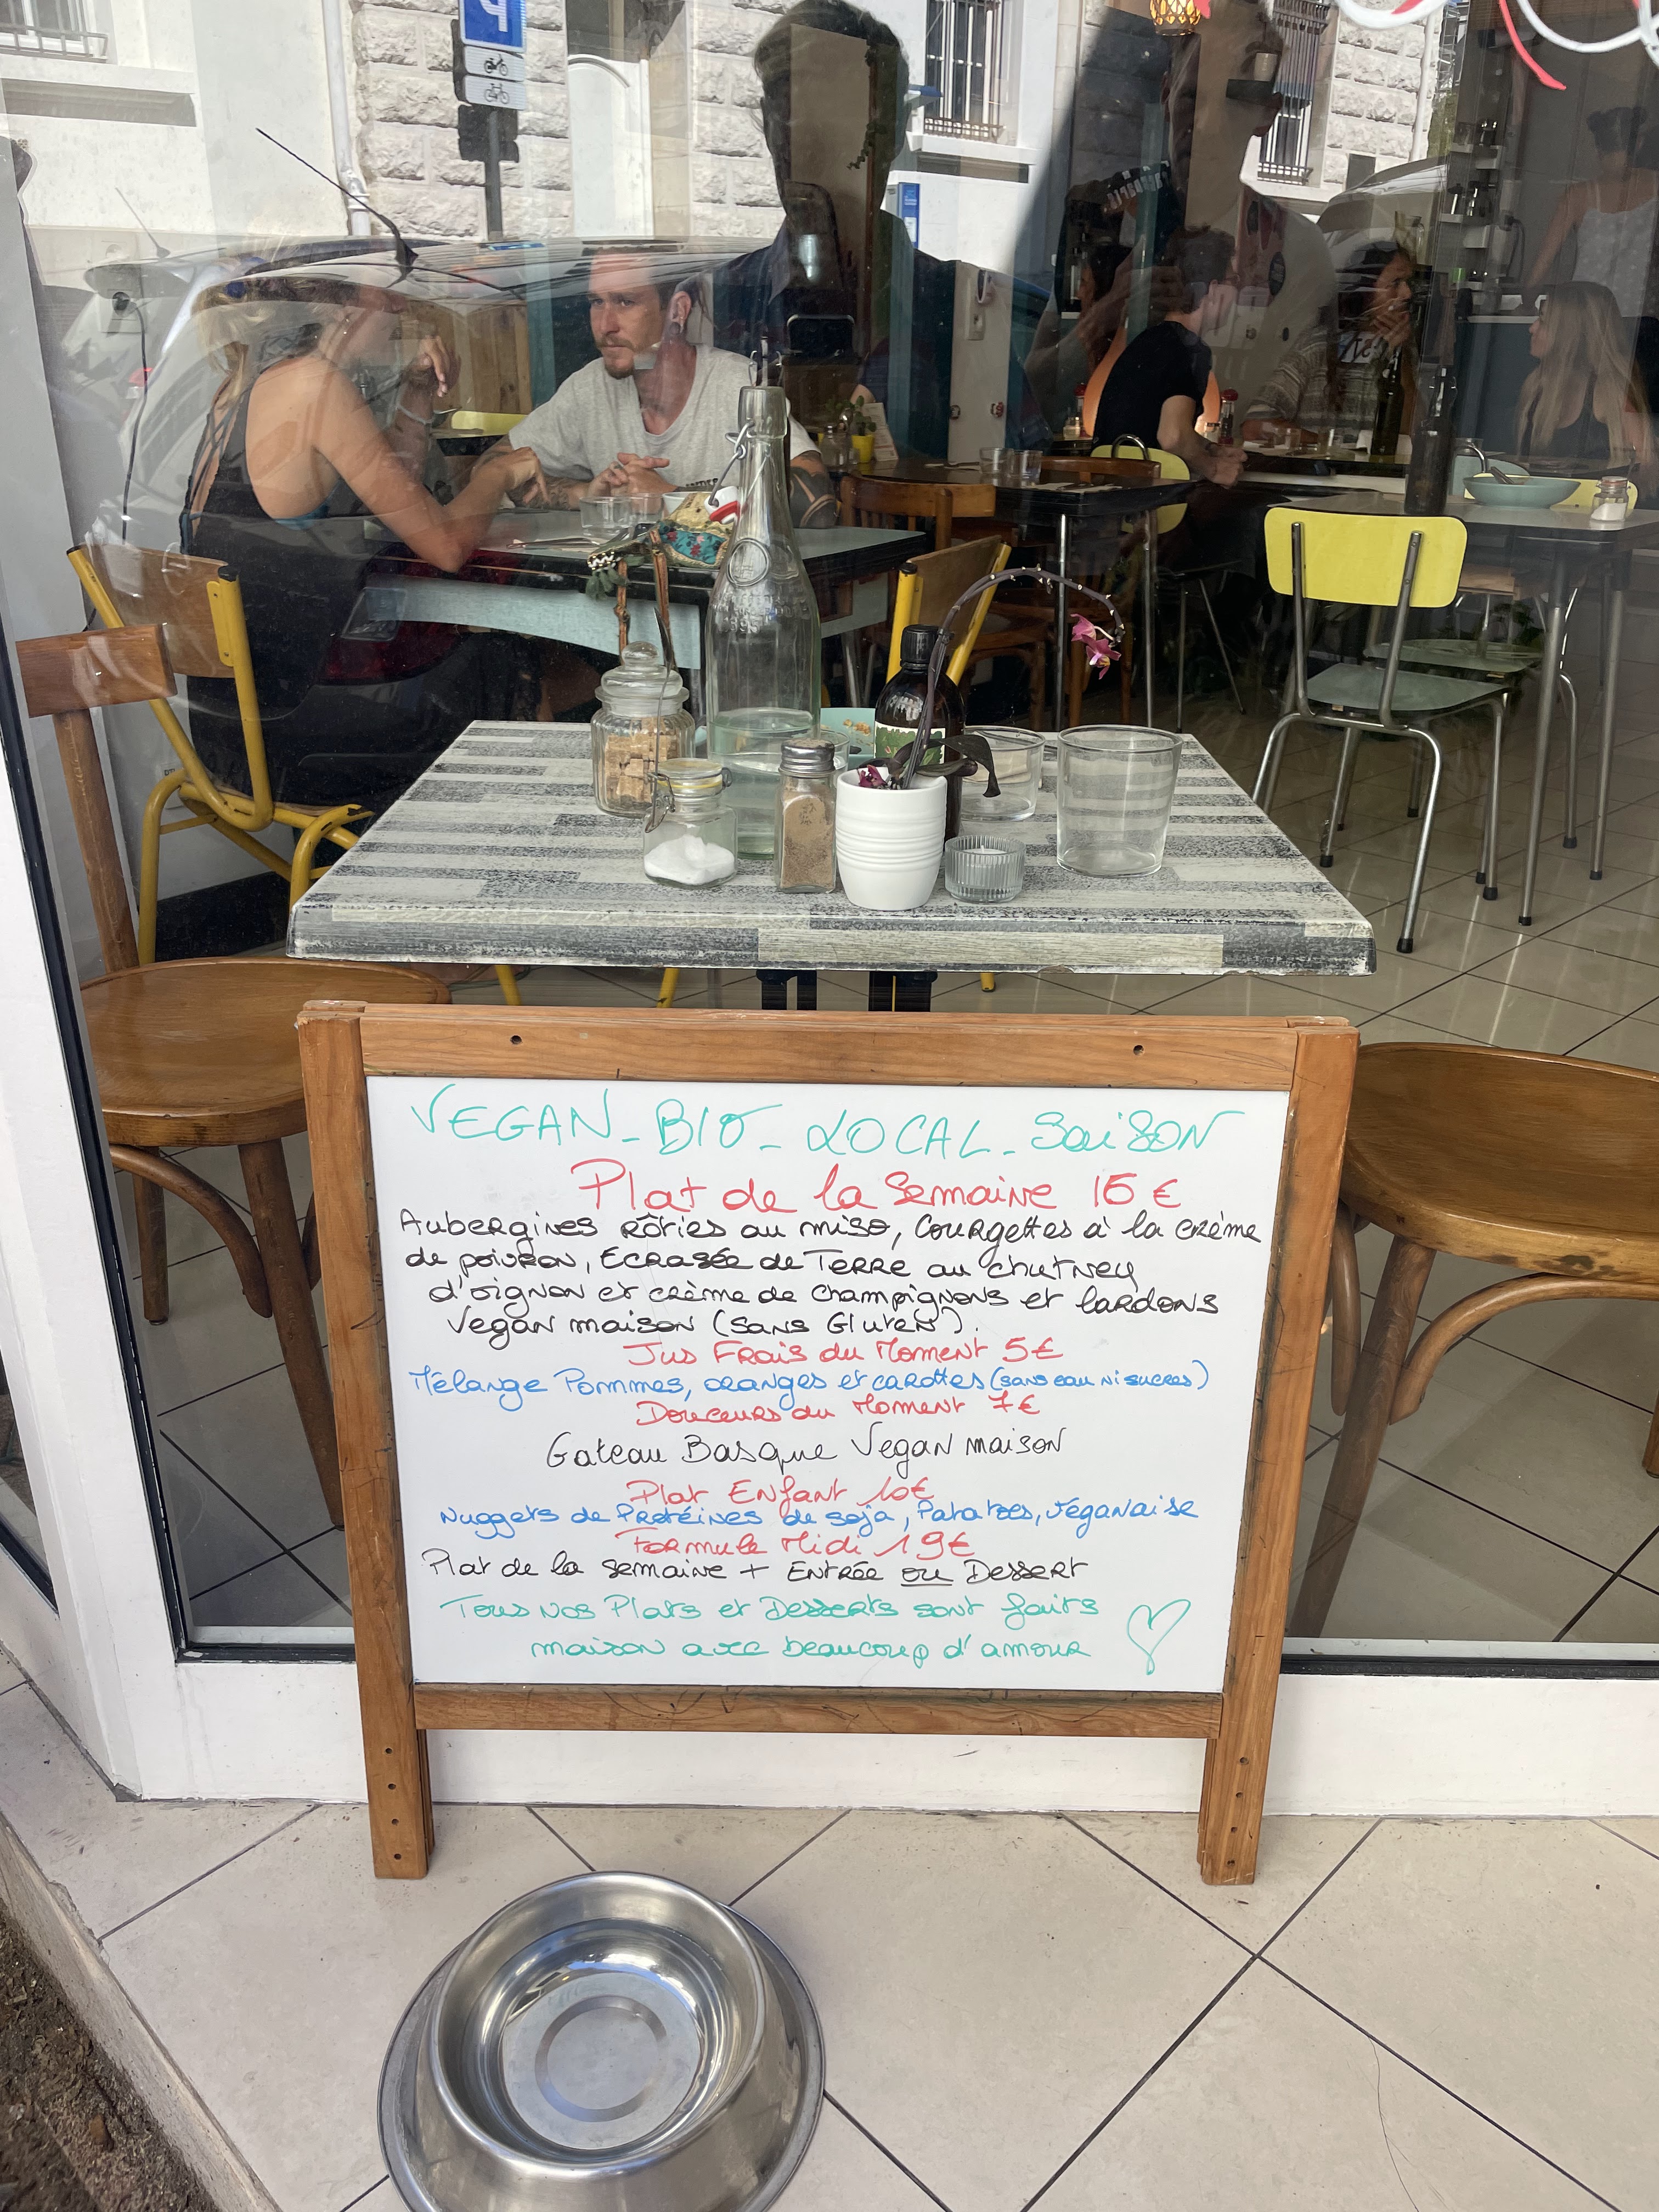 VEGAN - BIO - LOCAL - SAISON
Plat de la Semaine 16 €
Aubergines rôties au miso, Courgettes à la crème
de poivron, Ecrasée de Terre au chutney
d'oignon et crème de champignons et lardons
Vegan maison (sans Gluten).
Jus Frais du Moment 5€
Mélange Pommes, oranges et carottes (sans eau ni sucres)
Douceurs du Moment 7€
Gateau Basque Vegan maison
Plat Enfant 10€
Nuggets de Protéines de soja, Patatoes, véganaise
Formule Midi 19€
Plat de la semaine + Entrée ou Dessert
Tous nos Plats et Desserts sont faits
maison avec beaucoup d'amour